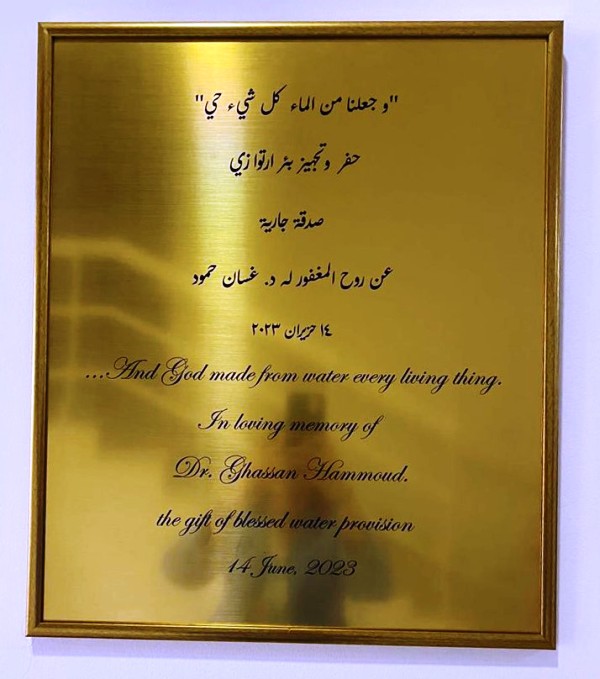 "و جعلنا من الماء كل شيء حي"
حفر وتجهيز بئر ارتوازي
صدقة جارية
عن روح المغفور له د. غسان حمود
١٤ حزيران ٢٠٢٣
...And God made from water every living thing.
In loving memory of
Dr. Ghassan Hammoud.
the gift of blessed water provision
14 June, 2023